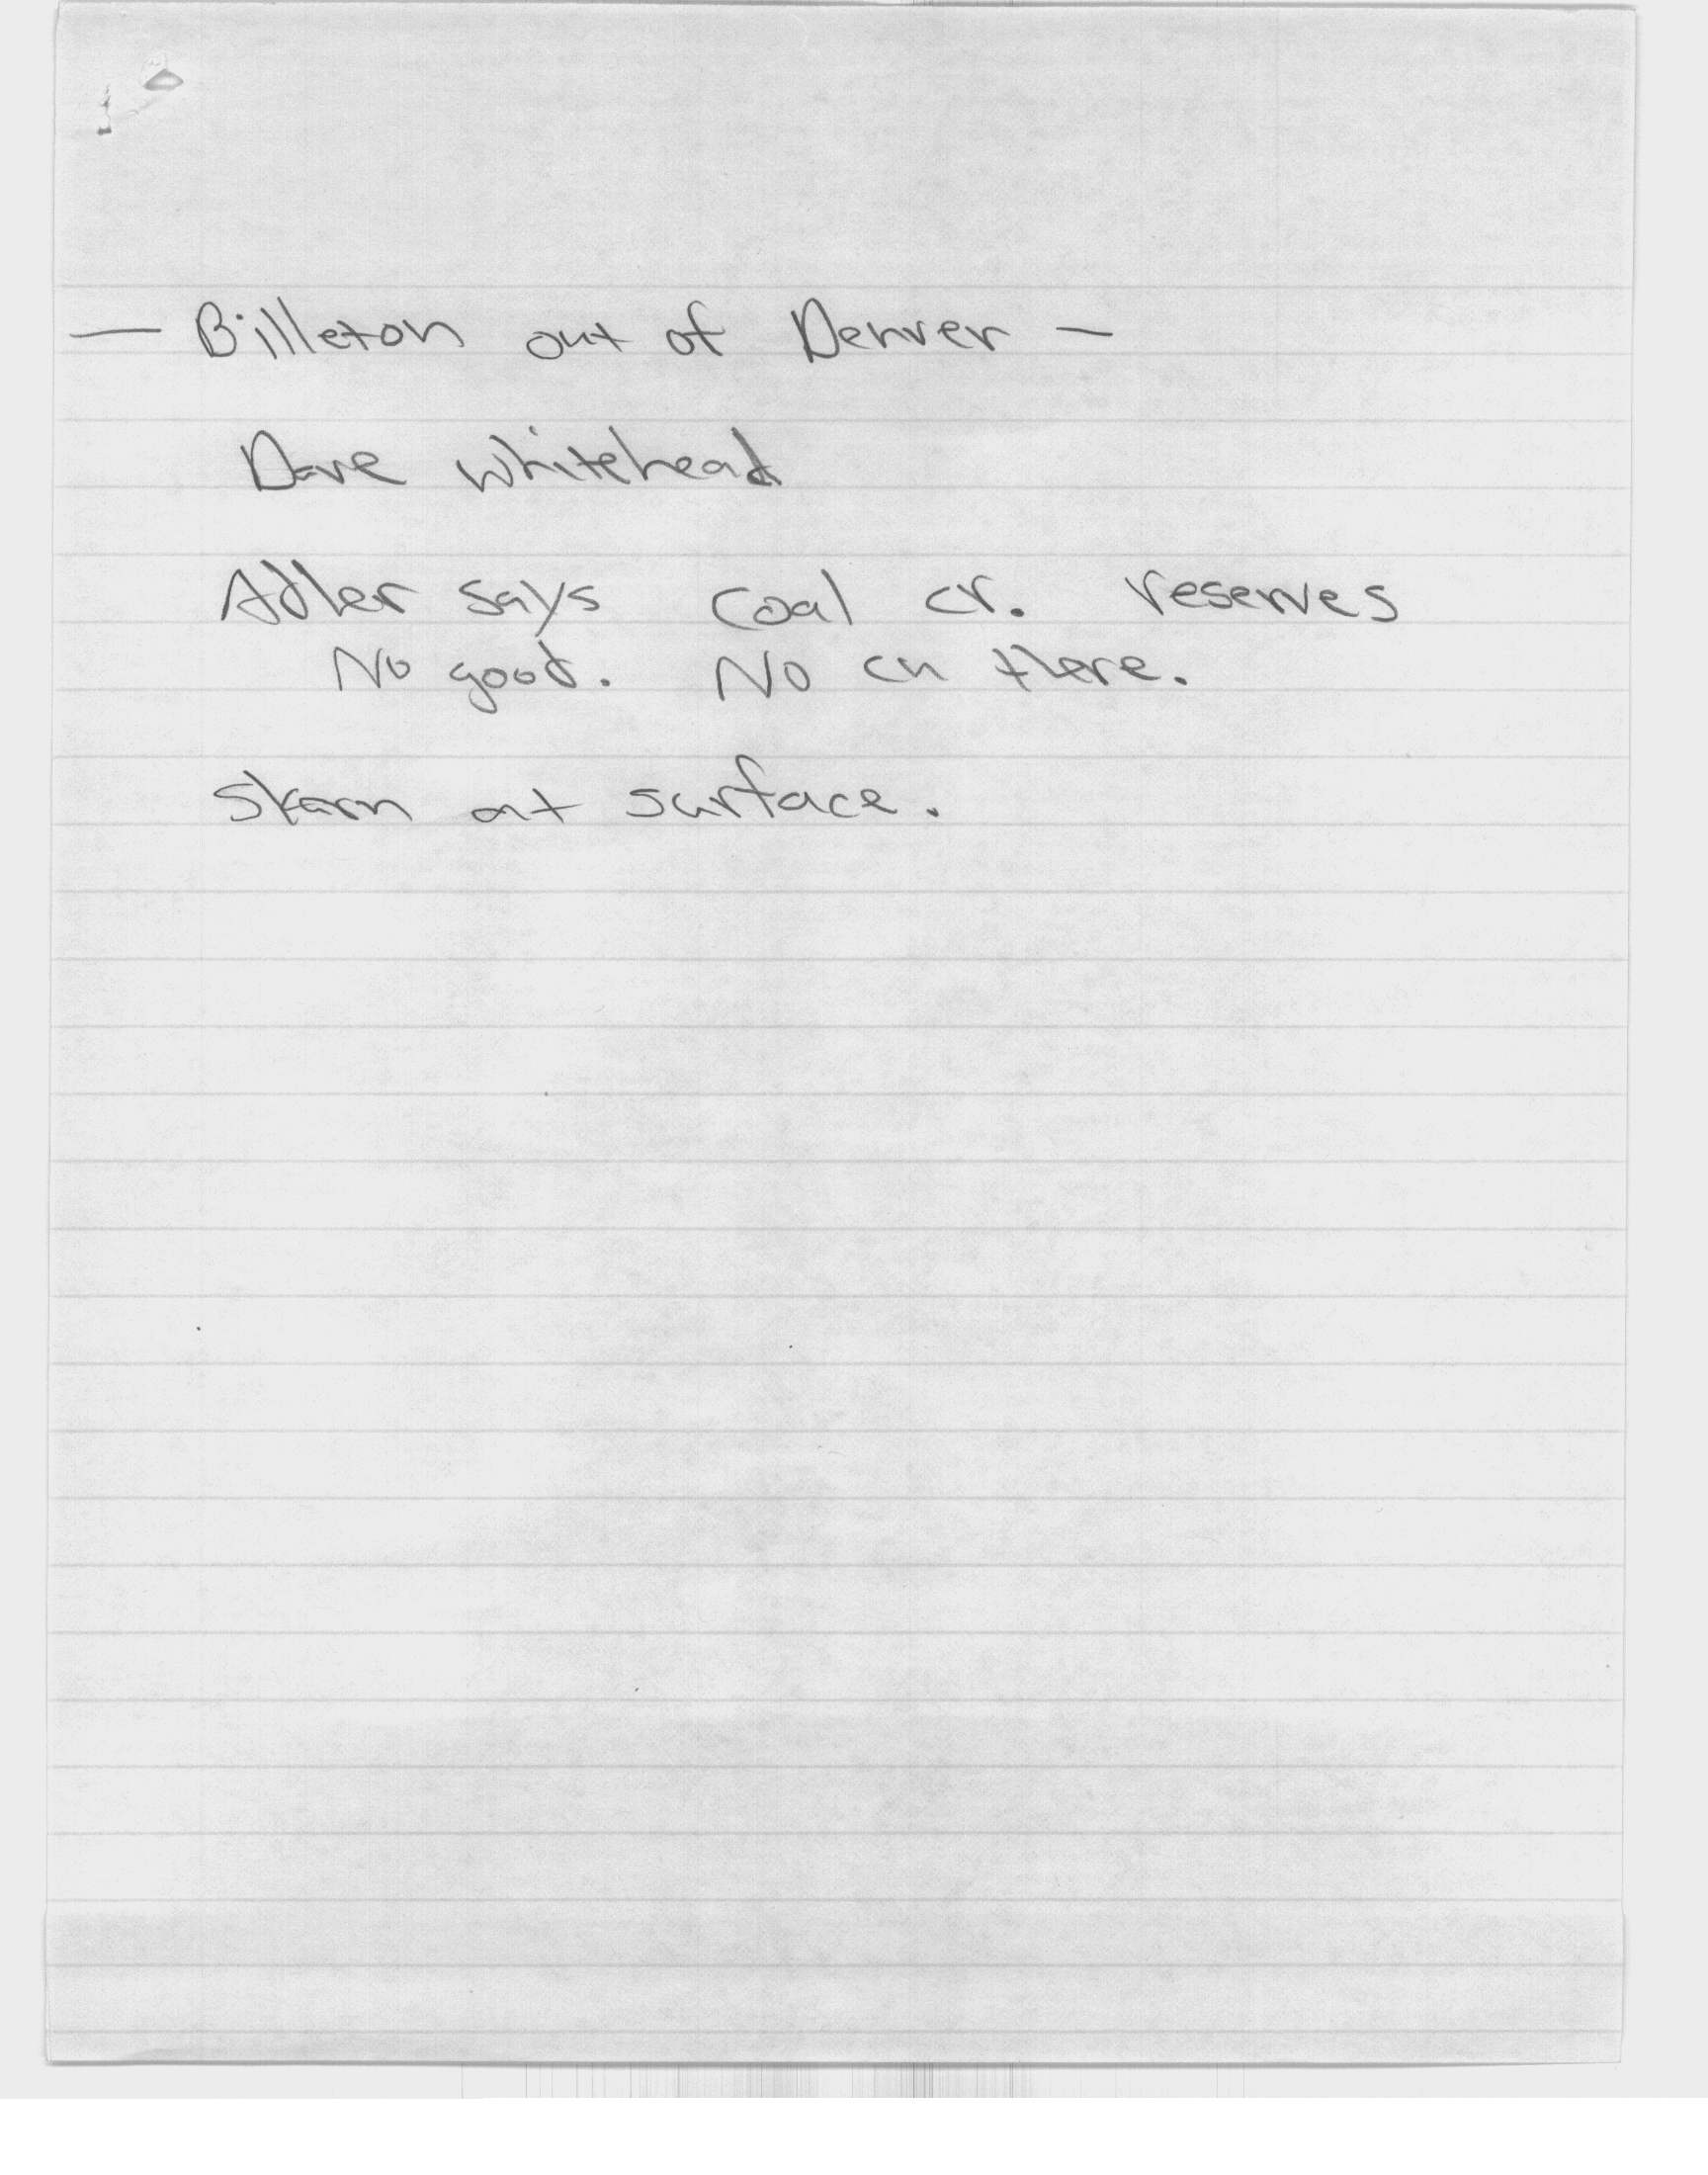 — Billeton out of Denver —
Dave Whitehead
Adler says Coal cr. reserves
No good. No cu there.
Skarn at surface.